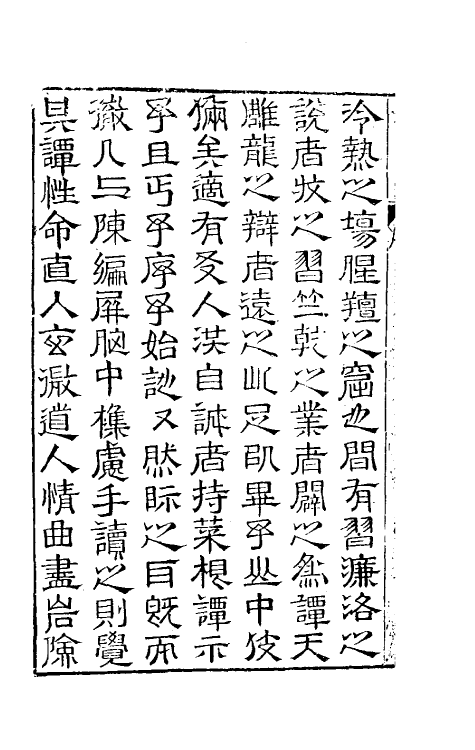 冷熱之塲腥羶之窟也間有習濂洛之
說者牧之習竺乾之業者闢之為譚天
雕龍之辯者遠之此足以畢予山中伎
倆矣適有友人洪自誠者持菜根譚示
予且丐予序予始訑又然眎之耳既而
徹几上陳編屏胸中雜慮手讀之則覺
其譚性命直入玄微道人情曲盡岩險